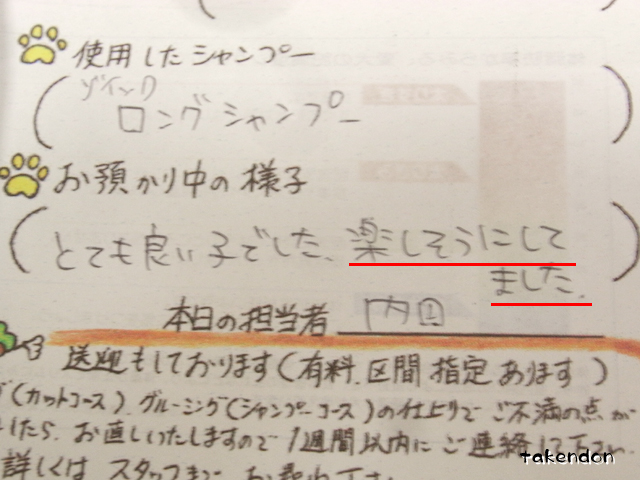 使用したシャンプー
ゾイック
ロングシャンプー
お預かり中の様子
とても良い子でした、楽しそうにして
ました。
本日の担当者
送迎もしております(有料、区間指定あります)
(カットコース)、グルーミング(シャンプーコース)の仕上りでご不満の点が
したら、お直しいたしますので1週間以内にご連絡して下さい。
詳しくはスタッフまでお尋ね下さ
takendon